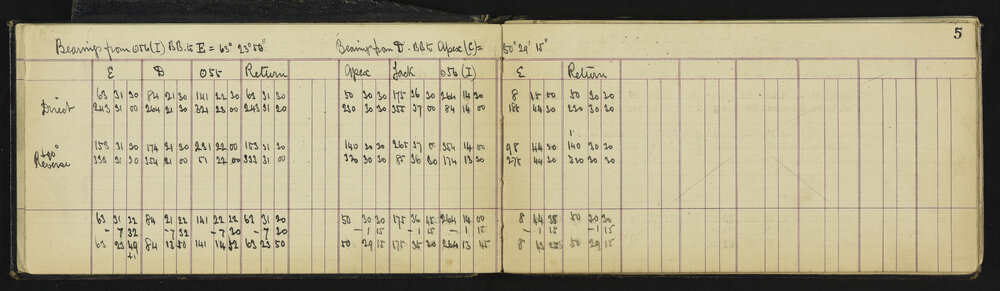 5
Bearings from 056 (I) B.B. to E = 63° 23' 50" Bearings from D. B.B. to Apex (C) = 50° 29' 15"
E D 055 Return Apex Jack 056 (I) E Return
Direct 63 31 30 84 21 30 141 22 30 63 31 30 50 30 30 175 36 30 264 14 30 8 45 00 50 30 30
243 31 20 264 21 30 321 23 00 243 31 20 230 30 30 355 37 00 84 14 00 188 44 30 230 30 30
+90° Reverse 153 31 30 174 21 30 231 22 00 153 31 30 140 30 30 265 37 00 354 14 00 98 44 30 140 30 30
333 31 30 354 21 00 51 22 00 333 31 00 320 30 30 85 36 30 174 13 30 278 44 30 320 30 30
63 31 22 84 21 22 141 22 22 63 31 20 50 30 30 175 36 45 264 14 00 8 44 38 50 30 30
- 7 32 - 7 32 - 7 30 - 7 30 - 1 15 - 1 15 - 1 15 - 1 15
63 23 49 84 13 50 141 14 52 63 23 50 50 29 15 175 35 30 264 13 45 8 43 50 29 15
+1